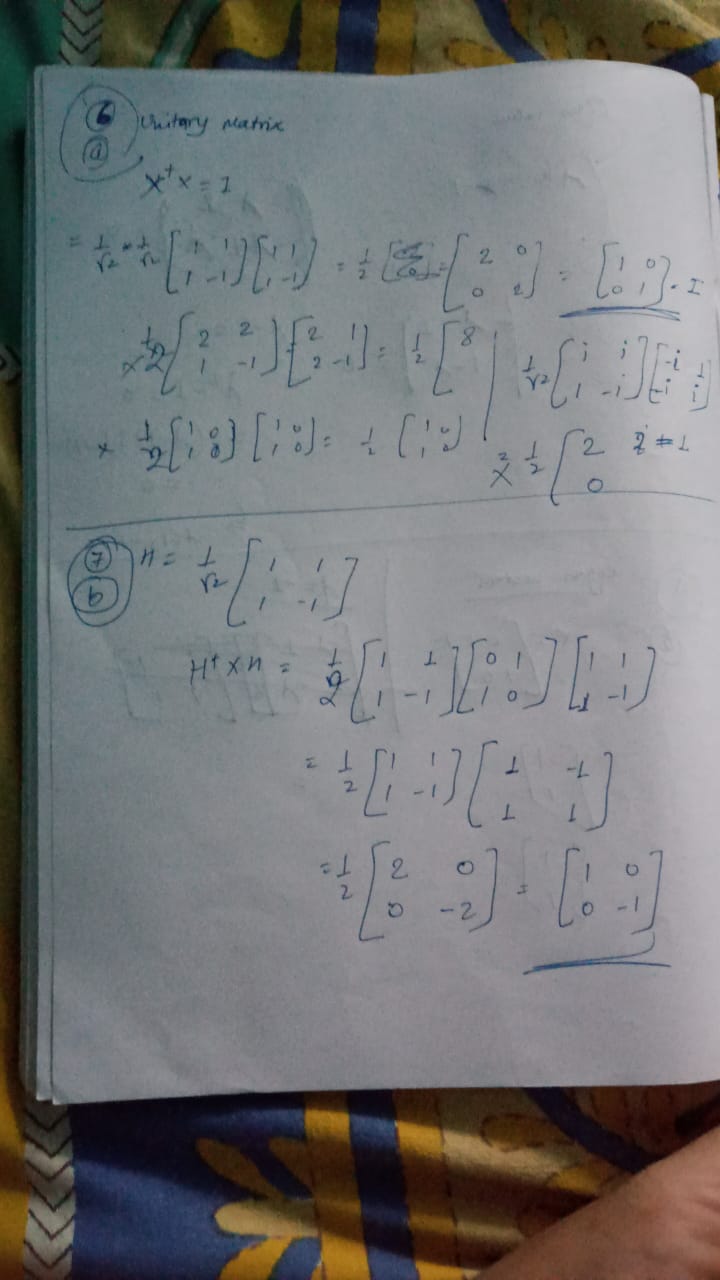 6 Unitary Matrix
a
X†X = I
= 1/√2 × 1/√2 [1 1; 1 -1] [1 1; 1 -1] = 1/2 [2 0; 0 2] = [1 0; 0 1] = I
× 1/2 [2 2; 1 -1] [2 1; 2 -1] = 1/2 [8 | 1/√2 [i i; 1 -i] [-i 1; -i i]
× 1/2 [1 0; 1 0] [1 0; 1 0] = 1/2 [1 0; 1 0] | × 1/2 [2; 0
7 H = 1/√2 [1 1; 1 -1]
b
H† X H = 1/2 [1 1; 1 -1] [0 1; 1 0] [1 1; 1 -1]
= 1/2 [1 1; 1 -1] [1 -1; 1 1]
= 1/2 [2 0; 0 -2] = [1 0; 0 -1]